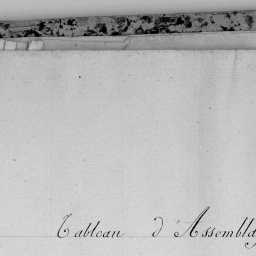 Tableau d'Assembla